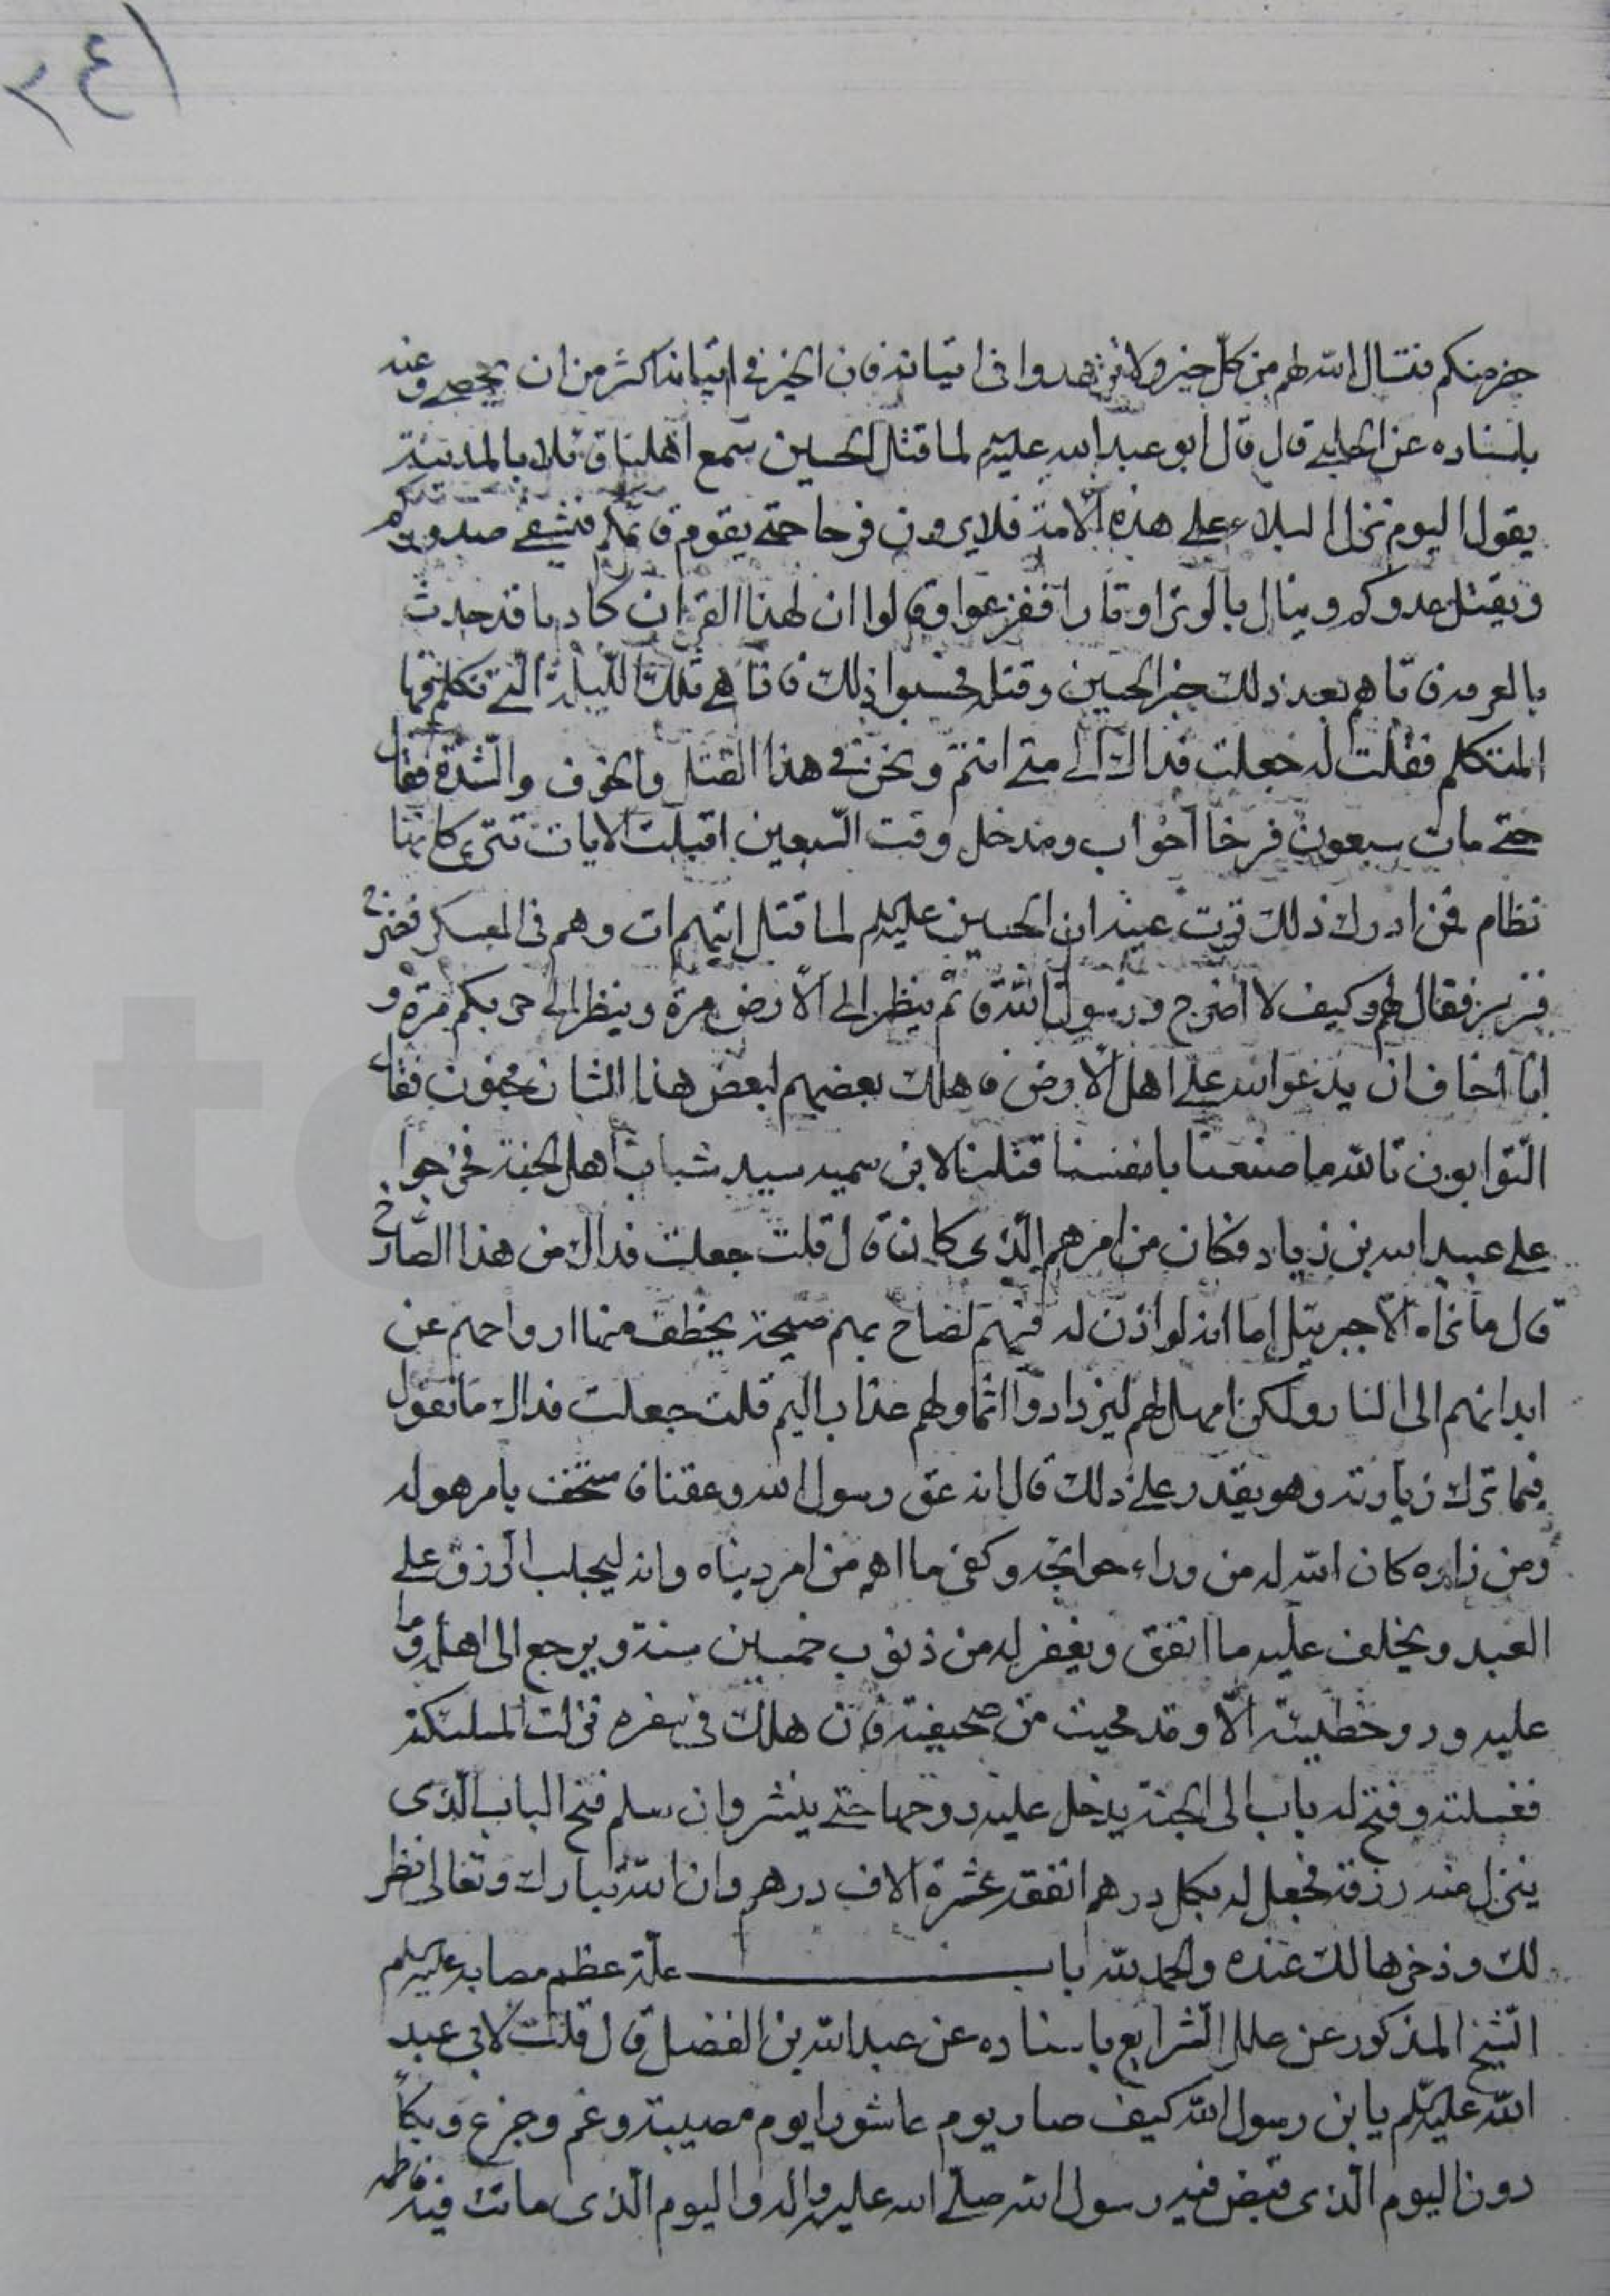 ٢٤١
حضر منكم فنسال الله لهم من كل خير ولا تزهدوا فى اتيانه فان الخير فى اتيانه اكثر من ان يحصى وعنه
باسناده عن الحلبى قال قال ابو عبد الله عليه السلم لما قتل الحسين سمع اهلنا قائلا بالمدينة
يقول اليوم نزل البلاء على هذه الامة فلا يرون فرحا حتى يقوم قائمكم فيشفى صدوركم
ويقتل عدوكم وينال بالوتر اوتارا ففزعوا وقالوا ان لهذا القران كادما قد حدث
بالعرفه فاتاهم بعد ذلك خبر الحسين وقتله فحسبوا ذلك فاذا هى تلك الليلة التى تكلم فيها
المتكلم فقلت له جعلت فداك الى متى انتم ونحن فى هذا القتل والخوف والشدة فقال
حتى مات سبعون فرخا اجواب ومدخل وقت السبعين اقبلت الايات تترى كانها
نظام فمن ادرك ذلك قرت عينه ان الحسين عليه السلم لما قتل اتيهم ات وهم فى المعسكر فصرخ
فزبر فقال لهم وكيف لا اصرخ ورسول الله قائم ينظر الى الارض مرة وينظر الى حربكم مرة و
انا اخاف ان يدعو الله على اهل الارض فاهلك بعضهم لبعض هذا انسان مجنون فقال
التوابون تالله ما صنعنا بانفسنا قتلنا لابن سميه سيد شباب اهل الجنة فخرجوا
على عبيد الله بن زياد فكان من امرهم الذى كان قال قلت جعلت فداك من هذا الصارخ
قال ما نراه الا جبرئيل اما انه لو اذن له فيهم لصاح بهم صيحة يخطف منها ارواحهم عن
ابدانهم الى النار ولكن امهل لهم ليزدادوا اثما ولهم عذاب اليم قلت جعلت فداك ما تقول
فيما ترك زيارته وهو يقدر على ذلك قال انه عق رسول الله وعقنا فاستخف بامر هو له
ومن زاره كان الله له من وراء حوائجه وكفى ما اهم من امر دنياه وانه ليجلب الرزق على
العبد ويخلف عليه ما انفق ويغفر له من ذنوب خمسين سنة ويرجع الى اهله وما
عليه وزر وخطيئة الا وقد محيت من صحيفته فان هلك فى سفره نزلت الملئكة
فغسلته وفتح له باب الى الجنة يدخل عليه روحها حتى ينشر وان سلم فتح الباب الذى
ينزل منه رزقه فجعل له بكل درهم انفقه عشرة الاف درهم وان الله تبارك وتعالى انظر
لك وذخرها لك عنده والحمد لله باب علة عظم مصابه عليه السلم
الشيخ المذكور عن علل الشرايع باسناده عن عبد الله بن الفضل قال قلت لابى عبد
الله عليه السلم يا بن رسول الله كيف صار يوم عاشورا يوم مصيبة وغم وجزع وبكاء
دون اليوم الذى قبض فيه رسول الله صلى الله عليه واله واليوم الذى ماتت فيه فاطمه